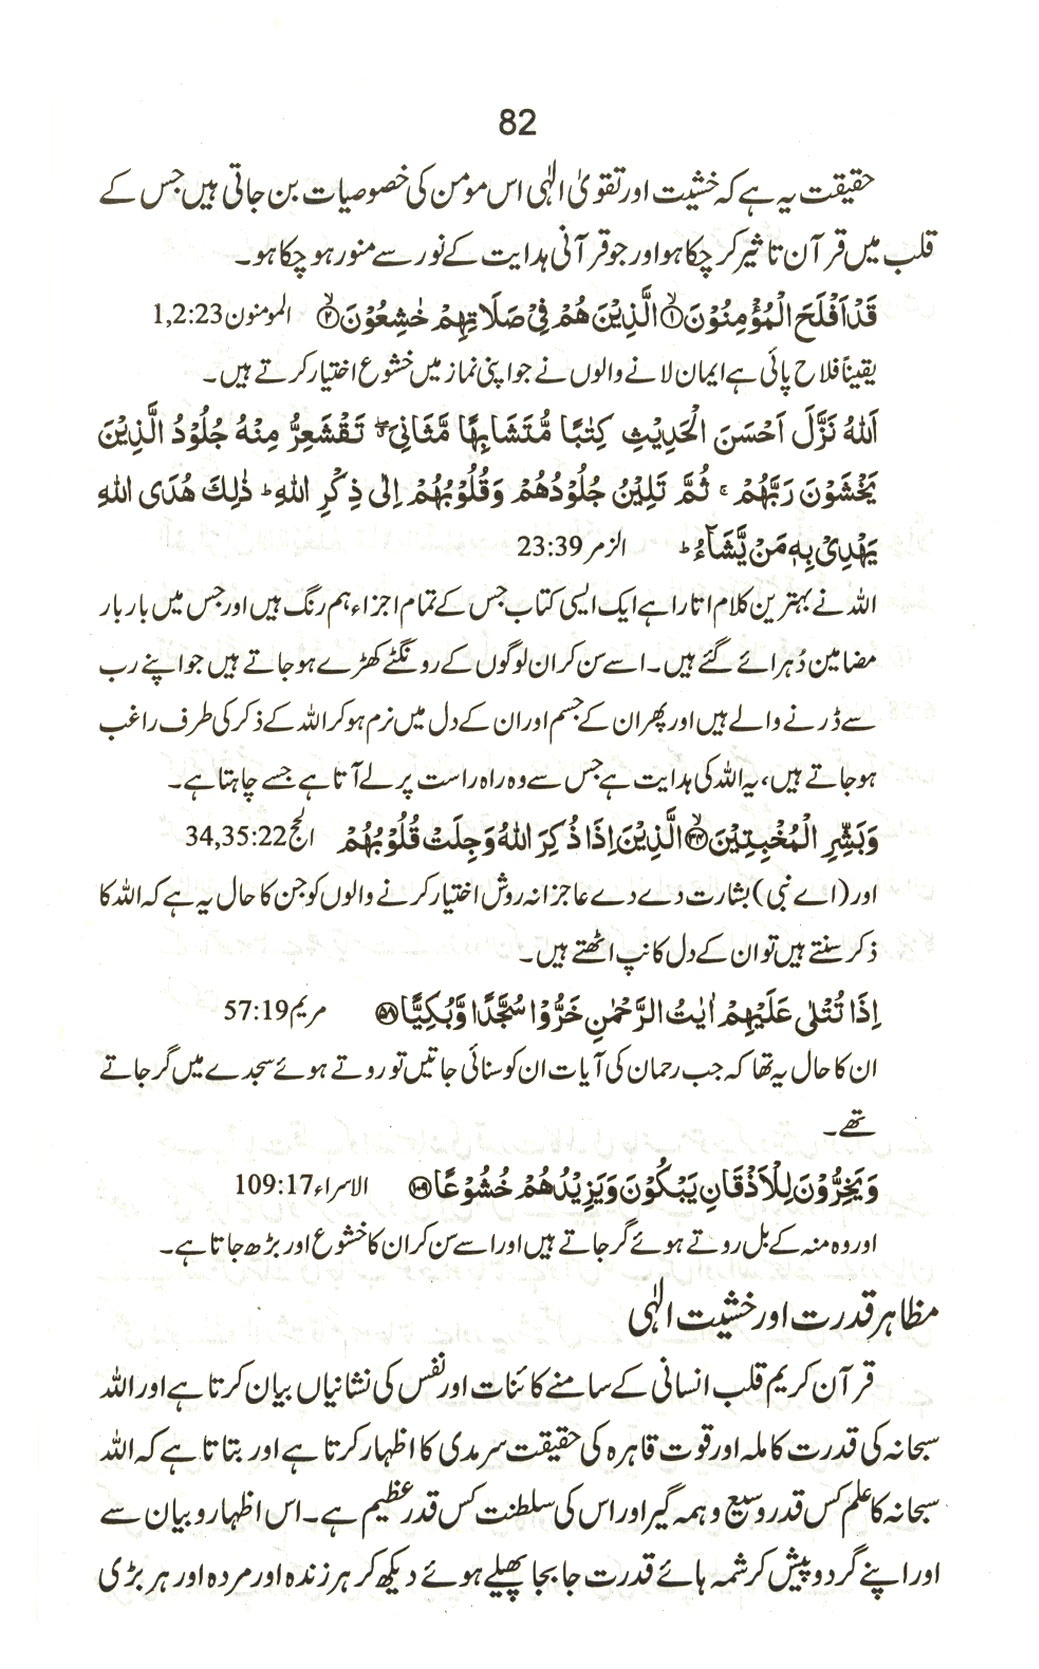 82
حقیقت یہ ہے کہ خشیت اور تقویٰ الٰہی اس مومن کی خصوصیات بن جاتی ہیں جس کے
قلب میں قرآن تاثیر کر چکا ہو اور جو قرآنی ہدایت کے نور سے منور ہو چکا ہو۔
قَدْ اَفْلَحَ الْمُؤْمِنُوْنَ ۙ﴿۱﴾ الَّذِیْنَ هُمْ فِیْ صَلَاتِهِمْ خٰشِعُوْنَ ۙ﴿۲﴾ المومنون 1,2:23
یقیناً فلاح پائی ہے ایمان لانے والوں نے جو اپنی نماز میں خشوع اختیار کرتے ہیں۔
اَللّٰهُ نَزَّلَ اَحْسَنَ الْحَدِیْثِ كِتٰبًا مُّتَشَابِهًا مَّثَانِیَ ۖ تَقْشَعِرُّ مِنْهُ جُلُوْدُ الَّذِیْنَ
یَخْشَوْنَ رَبَّهُمْ ۚ ثُمَّ تَلِیْنُ جُلُوْدُهُمْ وَقُلُوْبُهُمْ اِلٰى ذِكْرِ اللّٰهِ ؕ ذٰلِكَ هُدَى اللّٰهِ
یَهْدِیْ بِهٖ مَنْ یَّشَآءُ ؕ الزمر 23:39
اللہ نے بہترین کلام اتارا ہے ایک ایسی کتاب جس کے تمام اجزاء ہم رنگ ہیں اور جس میں بار بار
مضامین دُہرائے گئے ہیں۔ اسے سن کر ان لوگوں کے رونگٹے کھڑے ہو جاتے ہیں جو اپنے رب
سے ڈرنے والے ہیں اور پھر ان کے جسم اور ان کے دل میں نرم ہو کر اللہ کے ذکر کی طرف راغب
ہو جاتے ہیں، یہ اللہ کی ہدایت ہے جس سے وہ راہ راست پر لے آتا ہے جسے چاہتا ہے۔
وَبَشِّرِ الْمُخْبِتِیْنَ ۙ﴿۳۴﴾ الَّذِیْنَ اِذَا ذُكِرَ اللّٰهُ وَجِلَتْ قُلُوْبُهُمْ الحج 34,35:22
اور (اے نبی) بشارت دے دے عاجزانہ روش اختیار کرنے والوں کو جن کا حال یہ ہے کہ اللہ کا
ذکر سنتے ہیں تو ان کے دل کانپ اٹھتے ہیں۔
اِذَا تُتْلٰى عَلَیْهِمْ اٰیٰتُ الرَّحْمٰنِ خَرُّوْا سُجَّدًا وَّبُكِیًّا ﴿۵۸﴾ مریم 57:19
ان کا حال یہ تھا کہ جب رحمان کی آیات ان کو سنائی جاتیں تو روتے ہوئے سجدے میں گر جاتے
تھے۔
وَیَخِرُّوْنَ لِلْاَذْقَانِ یَبْكُوْنَ وَیَزِیْدُهُمْ خُشُوْعًا ﴿۱۰۹﴾ الاسراء 109:17
اور وہ منہ کے بل روتے ہوئے گر جاتے ہیں اور اسے سن کر ان کا خشوع اور بڑھ جاتا ہے۔
مظاہر قدرت اور خشیت الٰہی
قرآن کریم قلب انسانی کے سامنے کائنات اور نفس کی نشانیاں بیان کرتا ہے اور اللہ
سبحانہ کی قدرت کاملہ اور قوت قاہرہ کی حقیقت سرمدی کا اظہار کرتا ہے اور بتاتا ہے کہ اللہ
سبحانہ کا علم کس قدر وسیع و ہمہ گیر اور اس کی سلطنت کس قدر عظیم ہے۔ اس اظہار و بیان سے
اور اپنے گرد و پیش کرشمہ ہائے قدرت جا بجا پھیلے ہوئے دیکھ کر ہر زندہ اور مردہ اور ہر بڑی